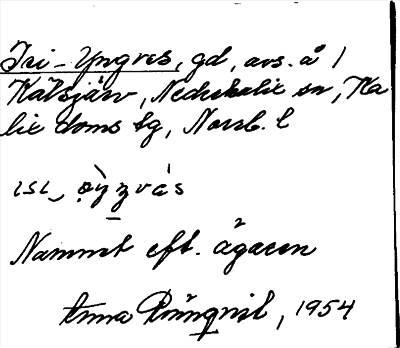 Isi-Yngves, gd, avs. å /
Kätsjärv, Nederkalix sn, Ka
lix doms lg, Norrb. l
Namnet eft. ägaren
Anna Rönqvist, 1954